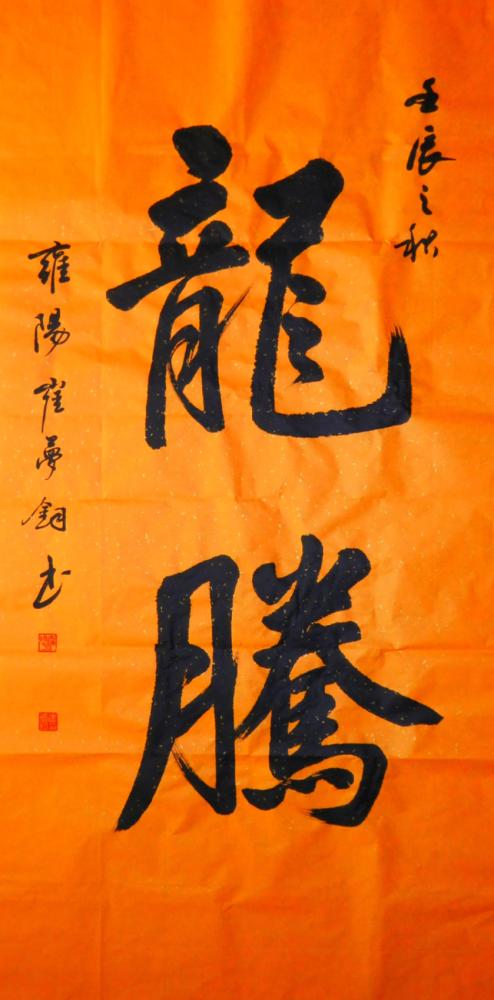 壬辰之秋
龍騰
雍陽崔夢釗书